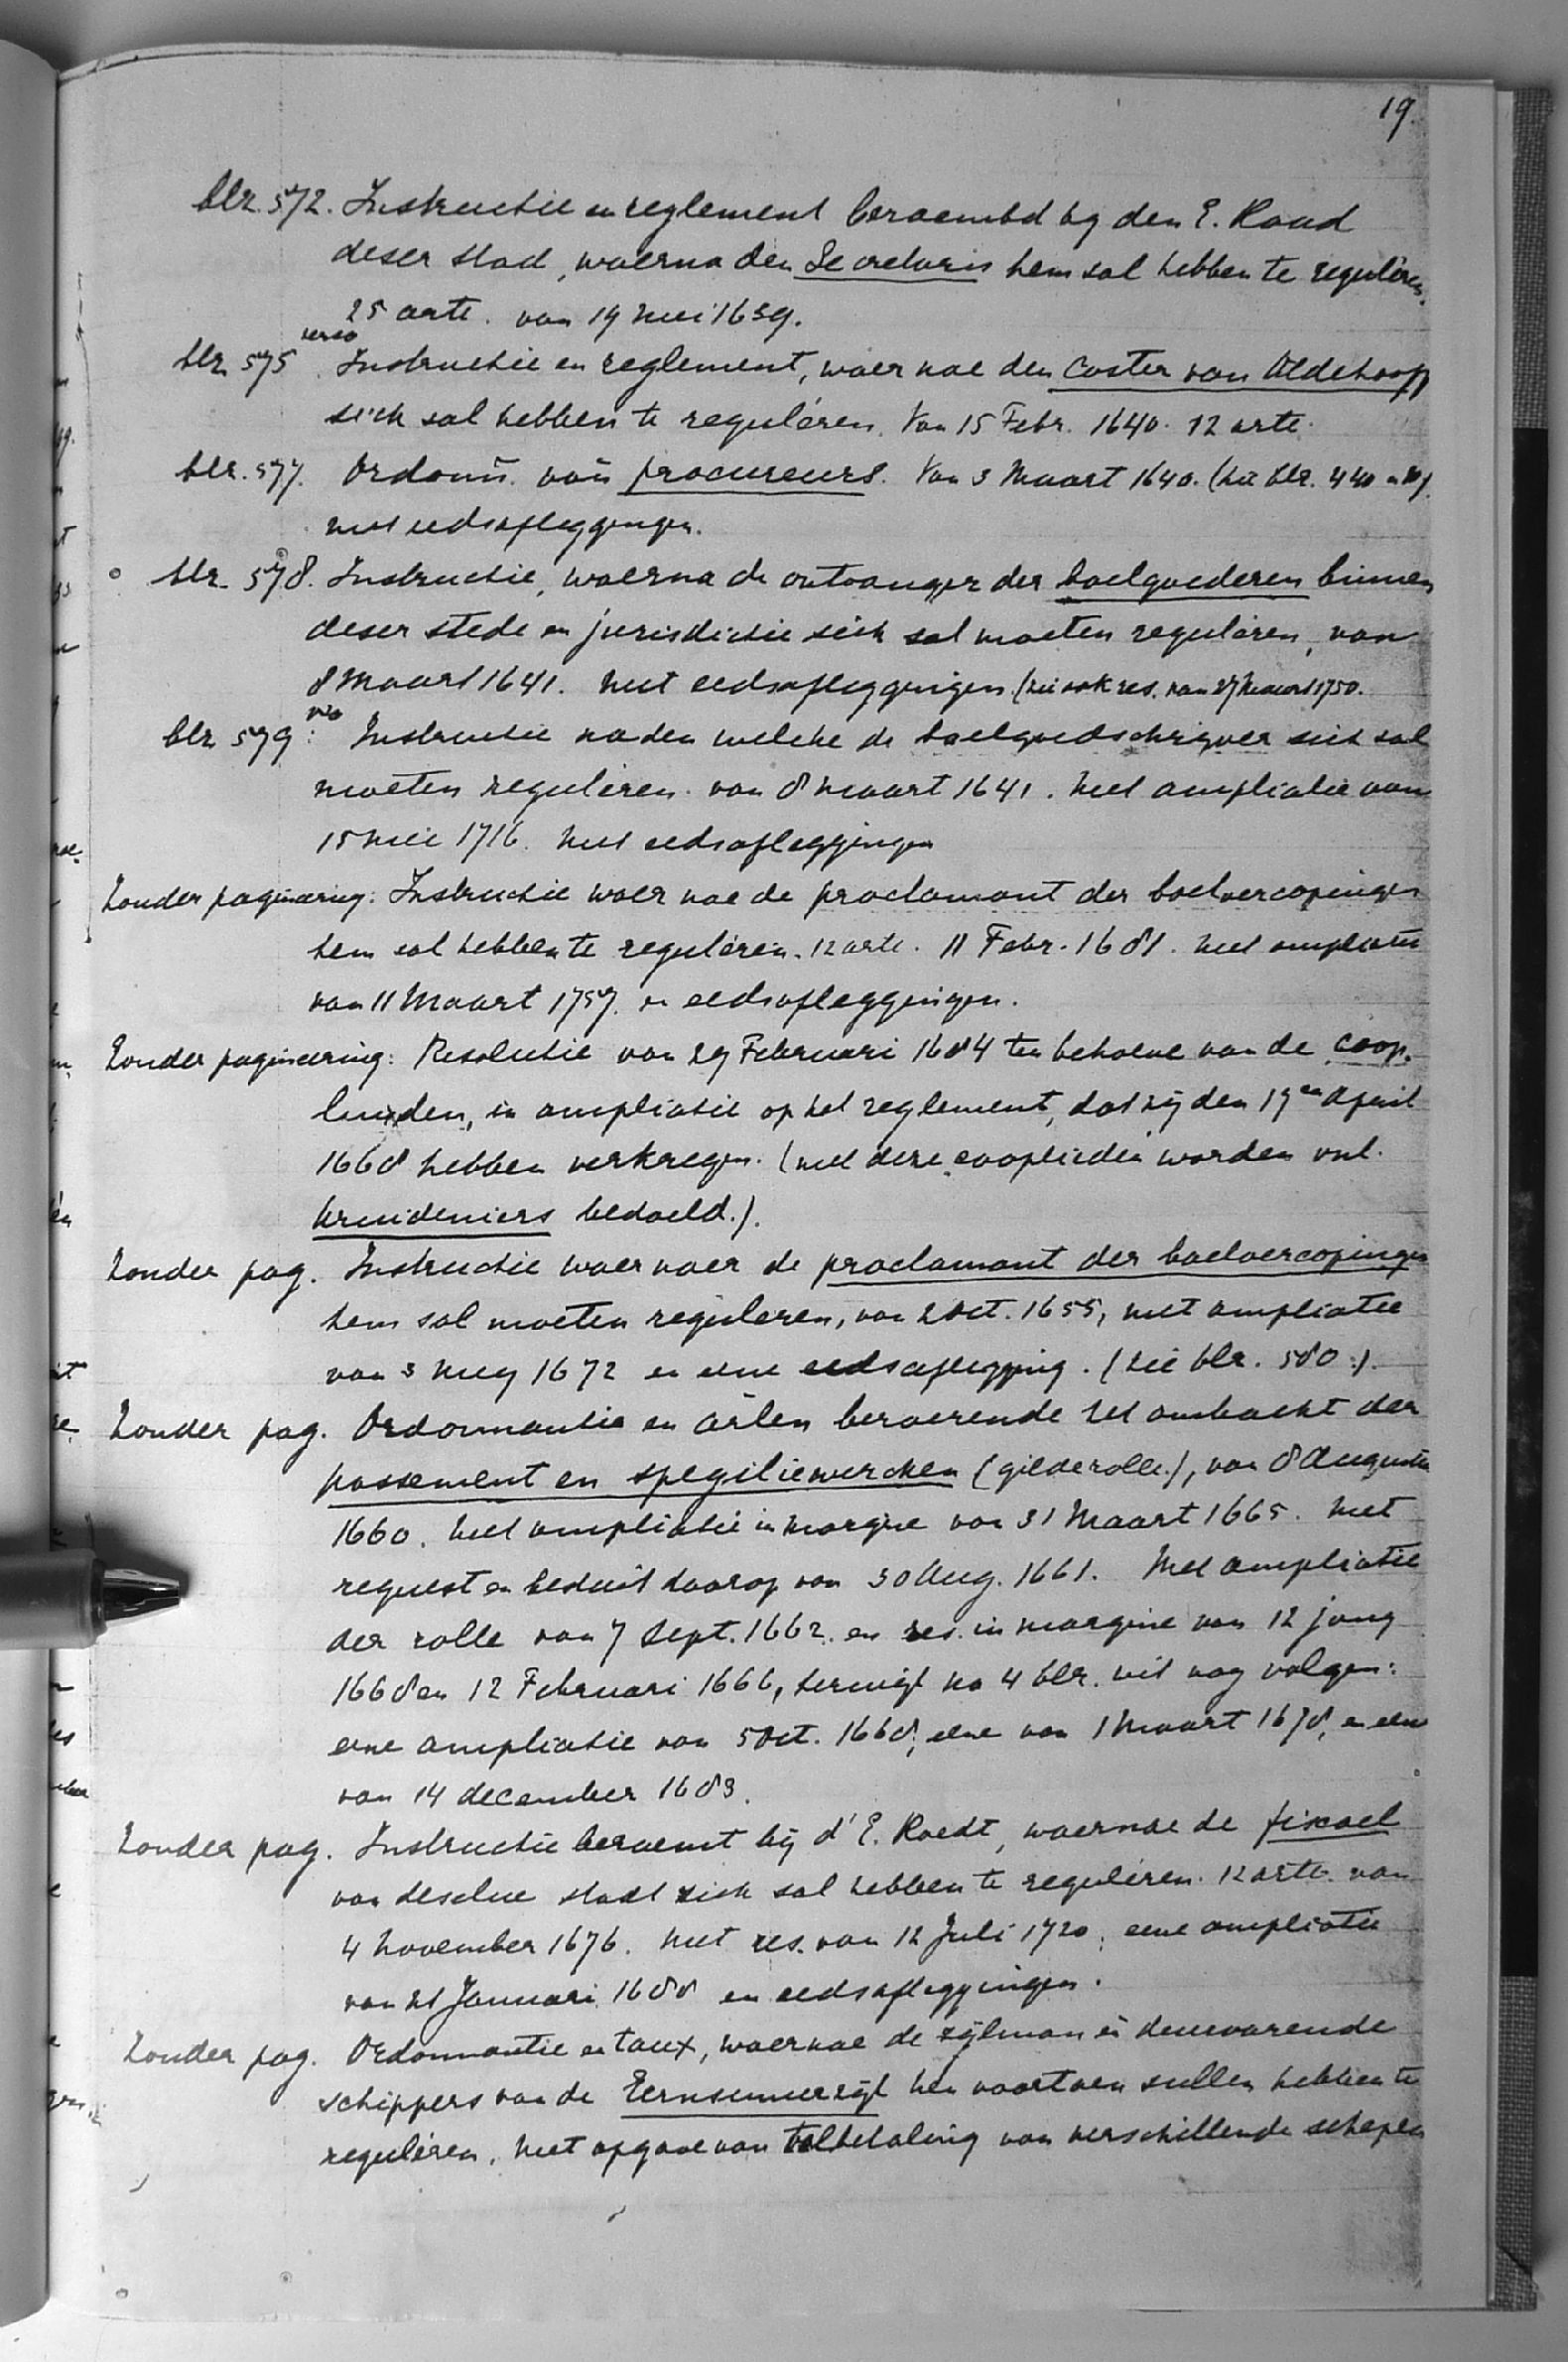 19.
blz. 572. Instructie en reglement beraembd by den E. Raad
deser stad, waerna den Secretaris hem sal hebben te reguleren.
25 arte. van 19 Mei 1639.
blz 575 verso. Instructie en reglement, waer nae den Coster van Oldehooff
sich sal hebben te reguléren. Van 15 Febr. 1640. 12 arte.
blz. 577. Ordonn. van procureurs. Van 3 Maart 1640. (zie blz. 440
met eedsafleggingen.
blz. 578. Instructie, waerna de ontvanger der boelgoederen binnen
deser stede en jurisdictie sich sal moeten reguléren, van
8 Maart 1641. Met eedsafleggingen (zie ook res. van 27 Maart 1750.
blz 579 vo: Instructie na den welcke de boelgoedschrijver sich sal
moeten reguléren. van 8 Maart 1641. Met ampliatie van
15 Mei 1716. Met eedsafleggingen
Zonder paginering: Instructie waer nae de proclamant der boelvercopingen
hem sal hebben te reguléren. 12 arte. 11 Febr. 1681. Met ampliatie
van 11 Maart 1757. en eedsafleggingen.
Zonder paginering: Resolutie van 29 Februari 1684 ten behoeve van de coop-
luyden, in ampliatie op het reglement, dat zij den 19en April
1668 hebben verkregen. (met deze coopliedén worden vnl.
kruideniers bedoeld.).
Zonder pag. Instructie waer naer de proclamant der boelvercopingen
hem sal moeten reguleren, van 2 Oct. 1655, met ampliatie
van 3 Mey 1672 en eene eedsaflegging. (zie blz. 580.).
Zonder pag. Ordonnantie en arlen beroerende het ambacht der
passement en spegiliewercken (gilderolle.), van 8 Augustus
1660. Met ampliatie in margine van 31 Maart 1665. Met
request en besluit daarop van 30 Aug. 1661. Met ampliatie
der rolle van 7 Sept. 1662. en res. in margine van 12 jany
1668 en 12 Februari 1666, terwijl na 4 blz. wit nog volgen:
eene ampliatie van 5 Oct. 1668, eene van 1 Maart 1678, en eene
van 14 december 1683.
Zonder pag. Instructie beraemt bij d' E. Raedt, waernae de fiscael
van deselve stadt sich sal hebben te reguléren. 12 arte. van
4 November 1676. Met res. van 12 Juli 1720; eene ampliatie
van 21 Januari 1688 en eedsafleggingen.
Zonder pag. Ordonnantie en taux, waernae de zijlman en deurvarende
schippers van de Eernsumerzijl hen voortaen sullen hebben te
reguléren. Met opgave van tolbetaling van verschillende schepen